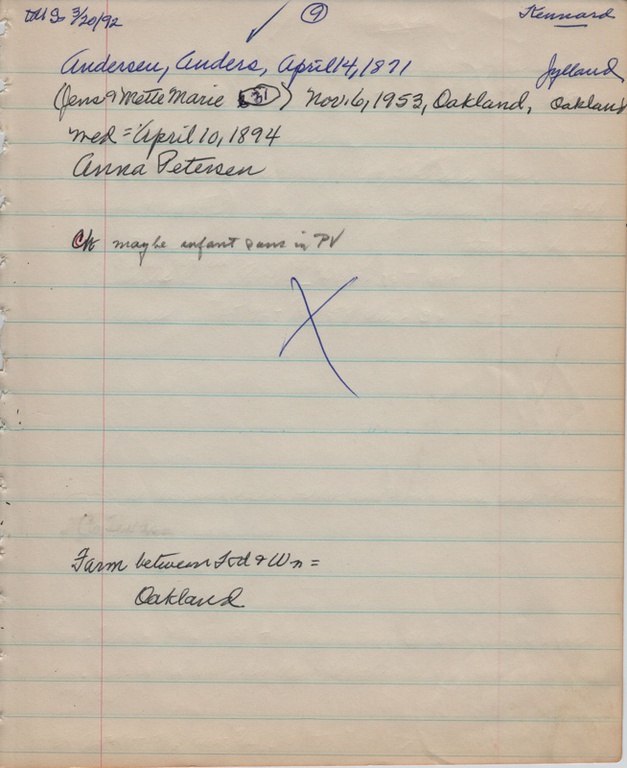 3/20/92 9 Kennard
Andersen, Anders, April 14, 1871 Jylland
(Jens & Mette Marie 31) Nov. 6, 1953, Oakland, Oakland
med = April 10, 1894
Anna Petersen
Ck maybe infant sons in PV
X
Farm between Ftd & Wn =
Oakland